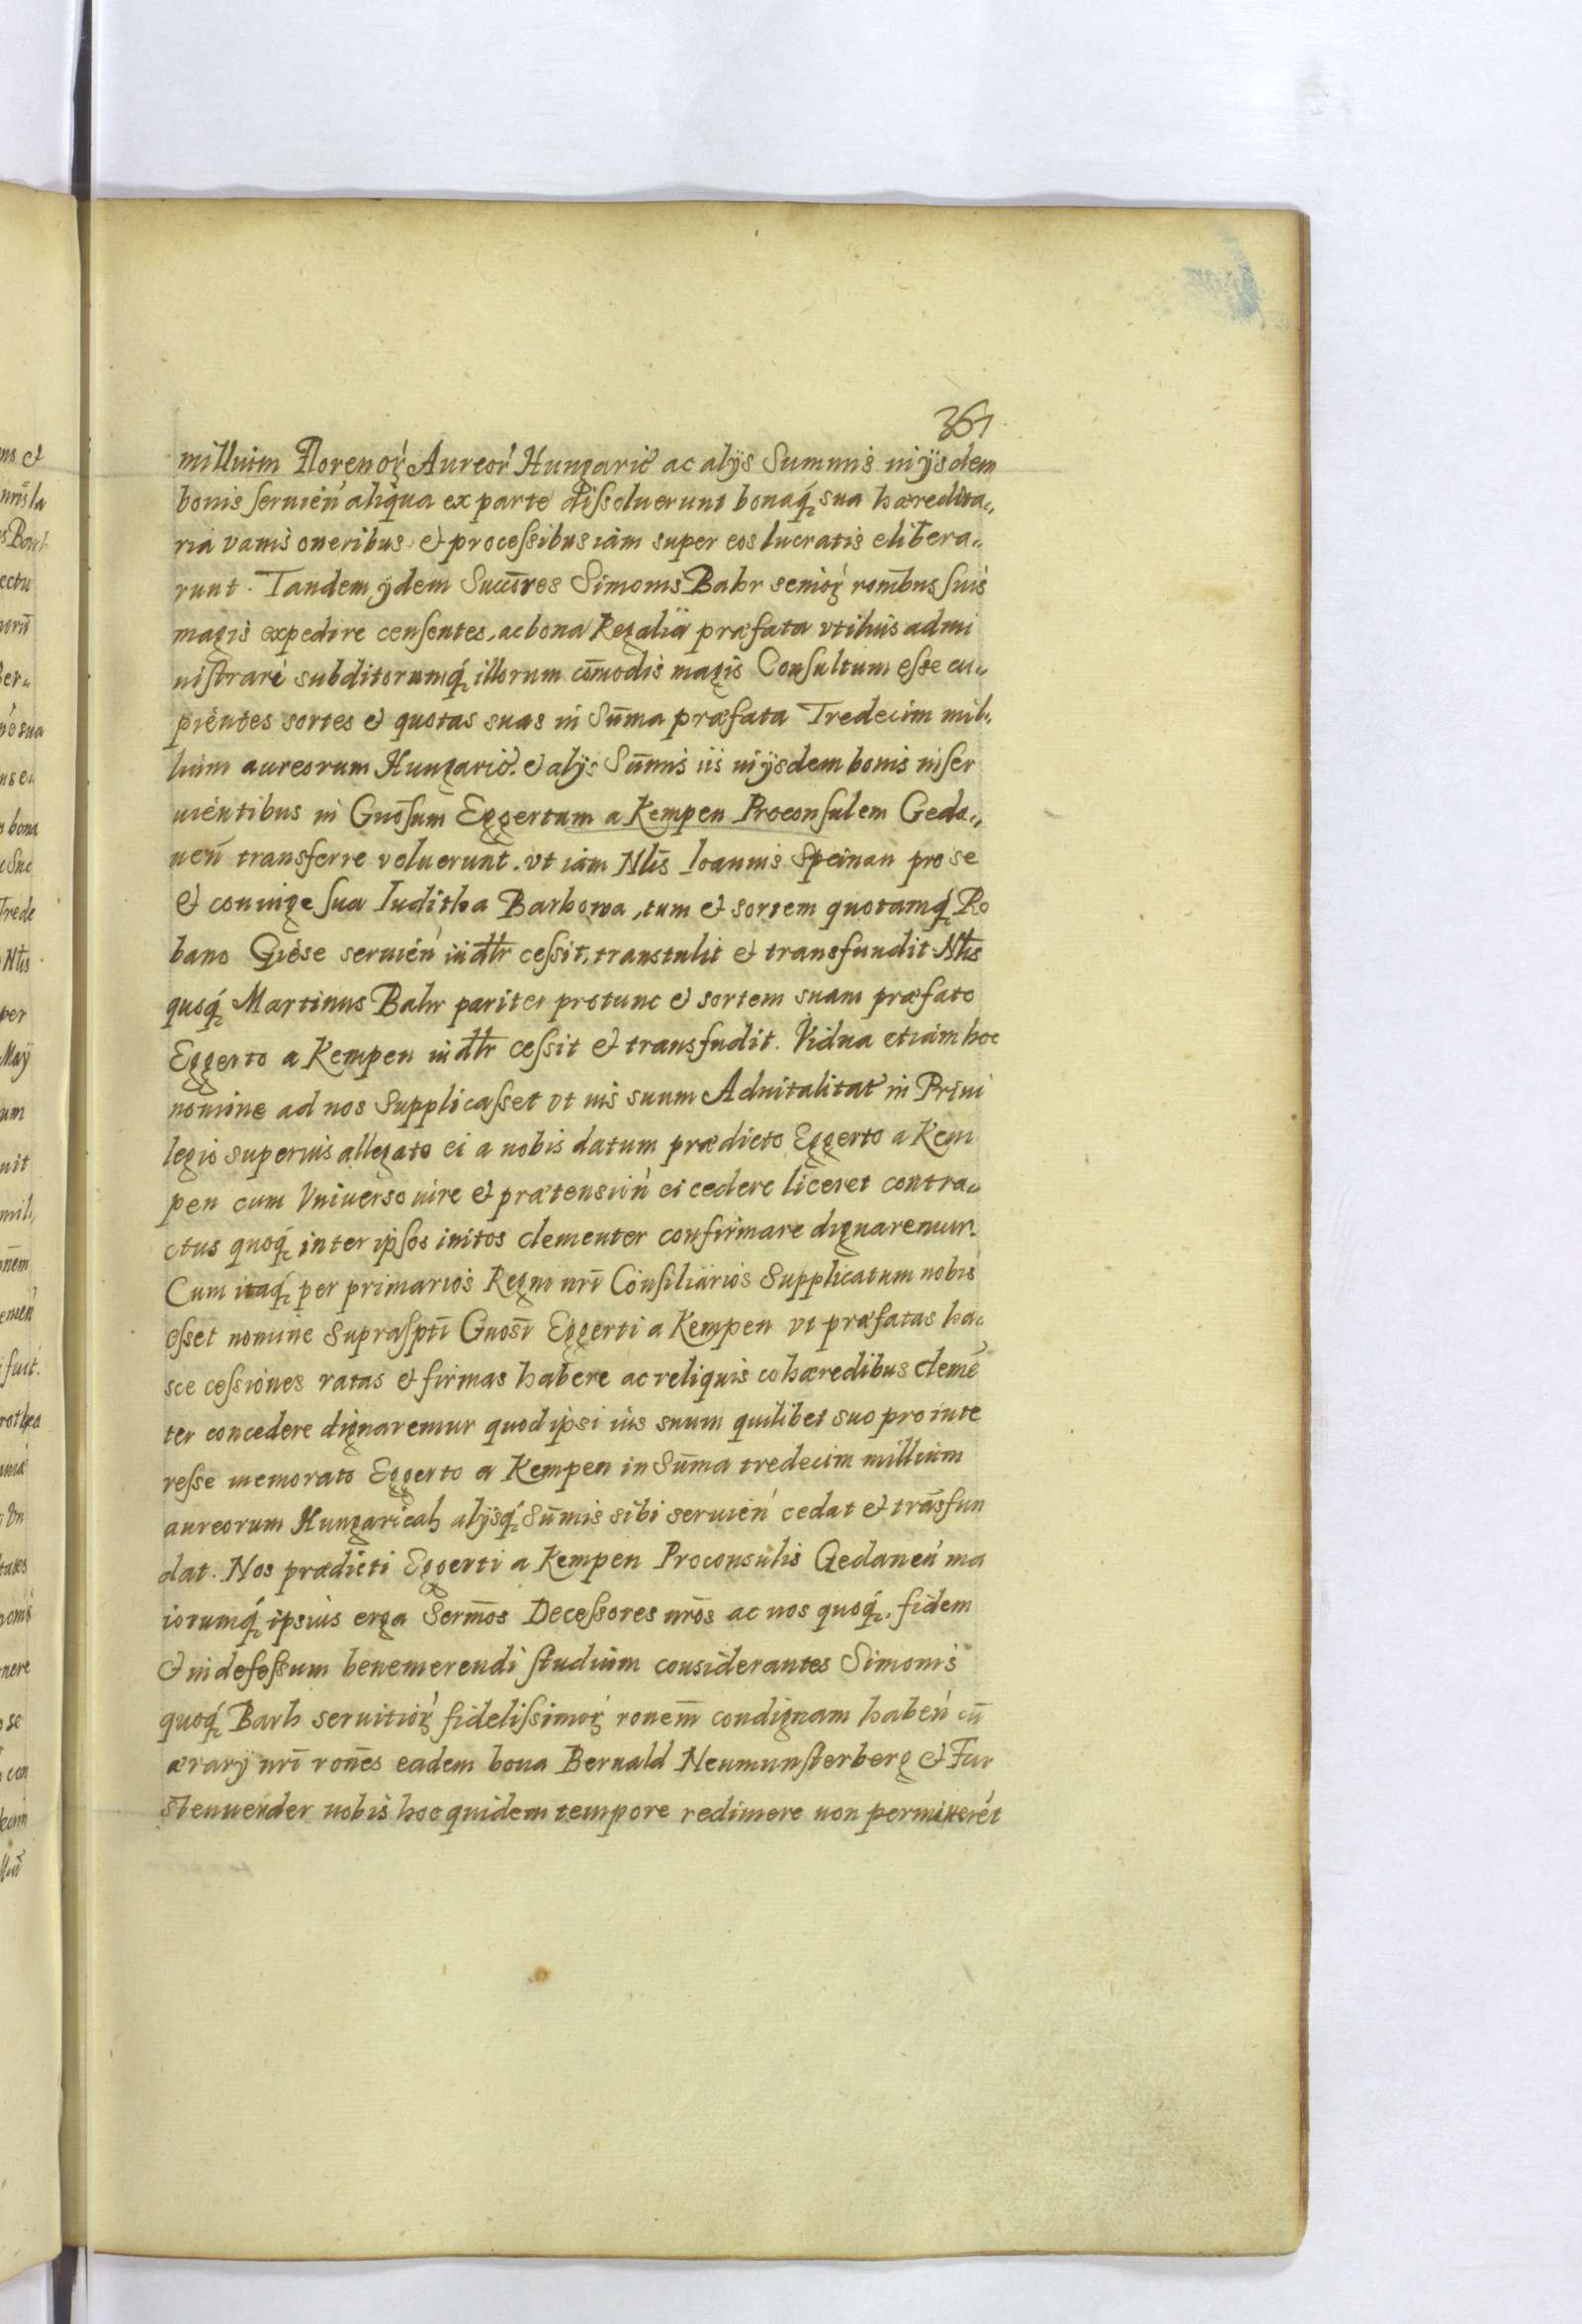 367
millium Florenoꝝ Aureor' Hungaric' ac alÿs Summis in ÿsdem
bonis seruien' aliqua ex parte dissoluerunt bonaq́ sua hæredita„
ria varijs oneribus et processibus iam super eos lucratis elibera„
runt. Tandem ÿdem Succ̄res Simonis Bahr senioꝝ rom̄bus suis
magis expedire censentes, ac bona Regalia præfata vtilius admi
nistrari subditorumq́ illorum cōmodis magis Consultum esse cu„
pientes sortes et quotas suas in Sum̄a præfata Tredecim mil„
lium aureorum Hungaric'. et alÿs Sum̄is iis in ÿsdem bonis inser
uientibus in Gnōsum Eggertum a Kempen Proconsulem Geda„
nen̄ transferre voluerunt. vt iam Nl̄is Ioannis Speiman pro se
et coniuge sua Iuditha Barhowa, tum et sortem quotamq́ Ro
bano Giese seruien' iū dt̄r cessit, transtulit et transfundit Nl̄is
quoq́ Martinus Bahr pariter protunc et sortem suam præfato
Eggerto a Kempen iū dt̄r cessit et transfudit. Vidua etiam hoc
nomine ad nos Supplicasset vt ius suum Aduitalitat' in Priui
legio superius allegato ei a nobis datum prædicto Eggerto a Kem
pen cum Vniuerso iure et prætension' ei cedere liceret contra„
ctus quoq́ inter ipsos initos clementer confirmare dignaremur.
Cum itaq́ per primarios Regni nrī Consiliarios Supplicatum nobis
esset nomine Suprasptī Gnosī Eggerti a Kempen vt præfatas ha„
sce cessiones ratas et firmas habere ac reliquis cohæredibus clemē
ter concedere dignaremur quod ipsi ius suum quilibet suo pro inte
resse memorato Eggerto a Kempen in Sum̄a tredecim millium
aureorum Hungaricalj alÿsq́ Sum̄is sibi seruien' cedat et trāsfun
dat. Nos prædicti Eggerti a Kempen Proconsulis Gedanen' ma
iorumq́ ipsius erga Serm̄os Decessores nrōs ac nos quoq́, fidem
et indefessum benemerendi studium considerantes Simonis
quoq́ Barh seruitioꝝ fidelissimoꝝ ronem̄ condignam haben' cū
ærarÿ nrī ron̄es eadem bona Bernald Neumunsterberg et Fur
stenuerder nobis hoc quidem tempore redimere non permitterēt